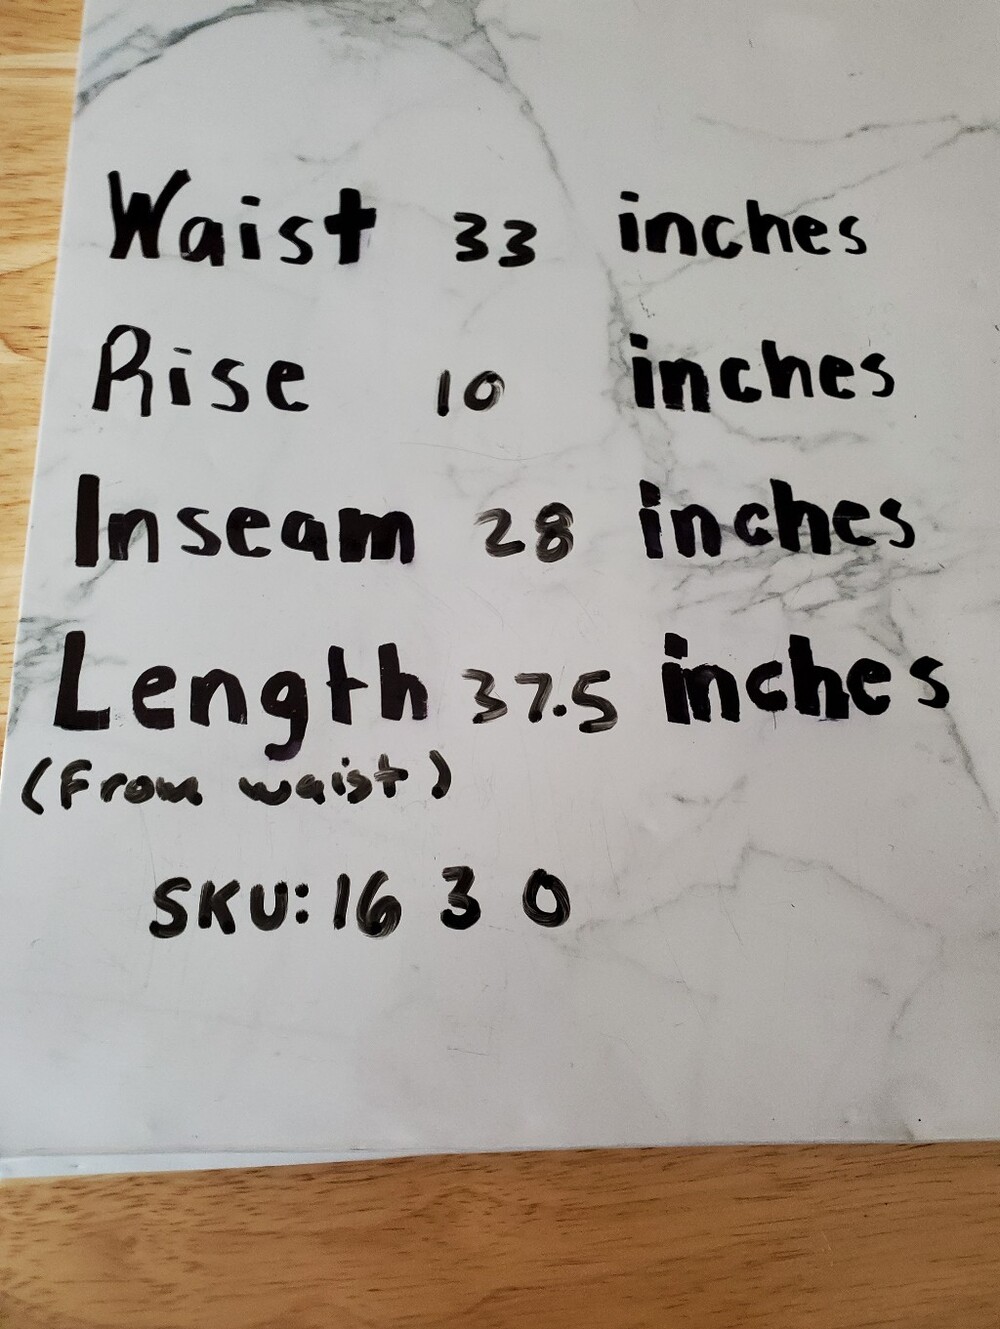 Waist 33 inches
Rise 10 inches
Inseam 28 inches
Length 37.5 inches
(From waist)
SKU: 16 3 0